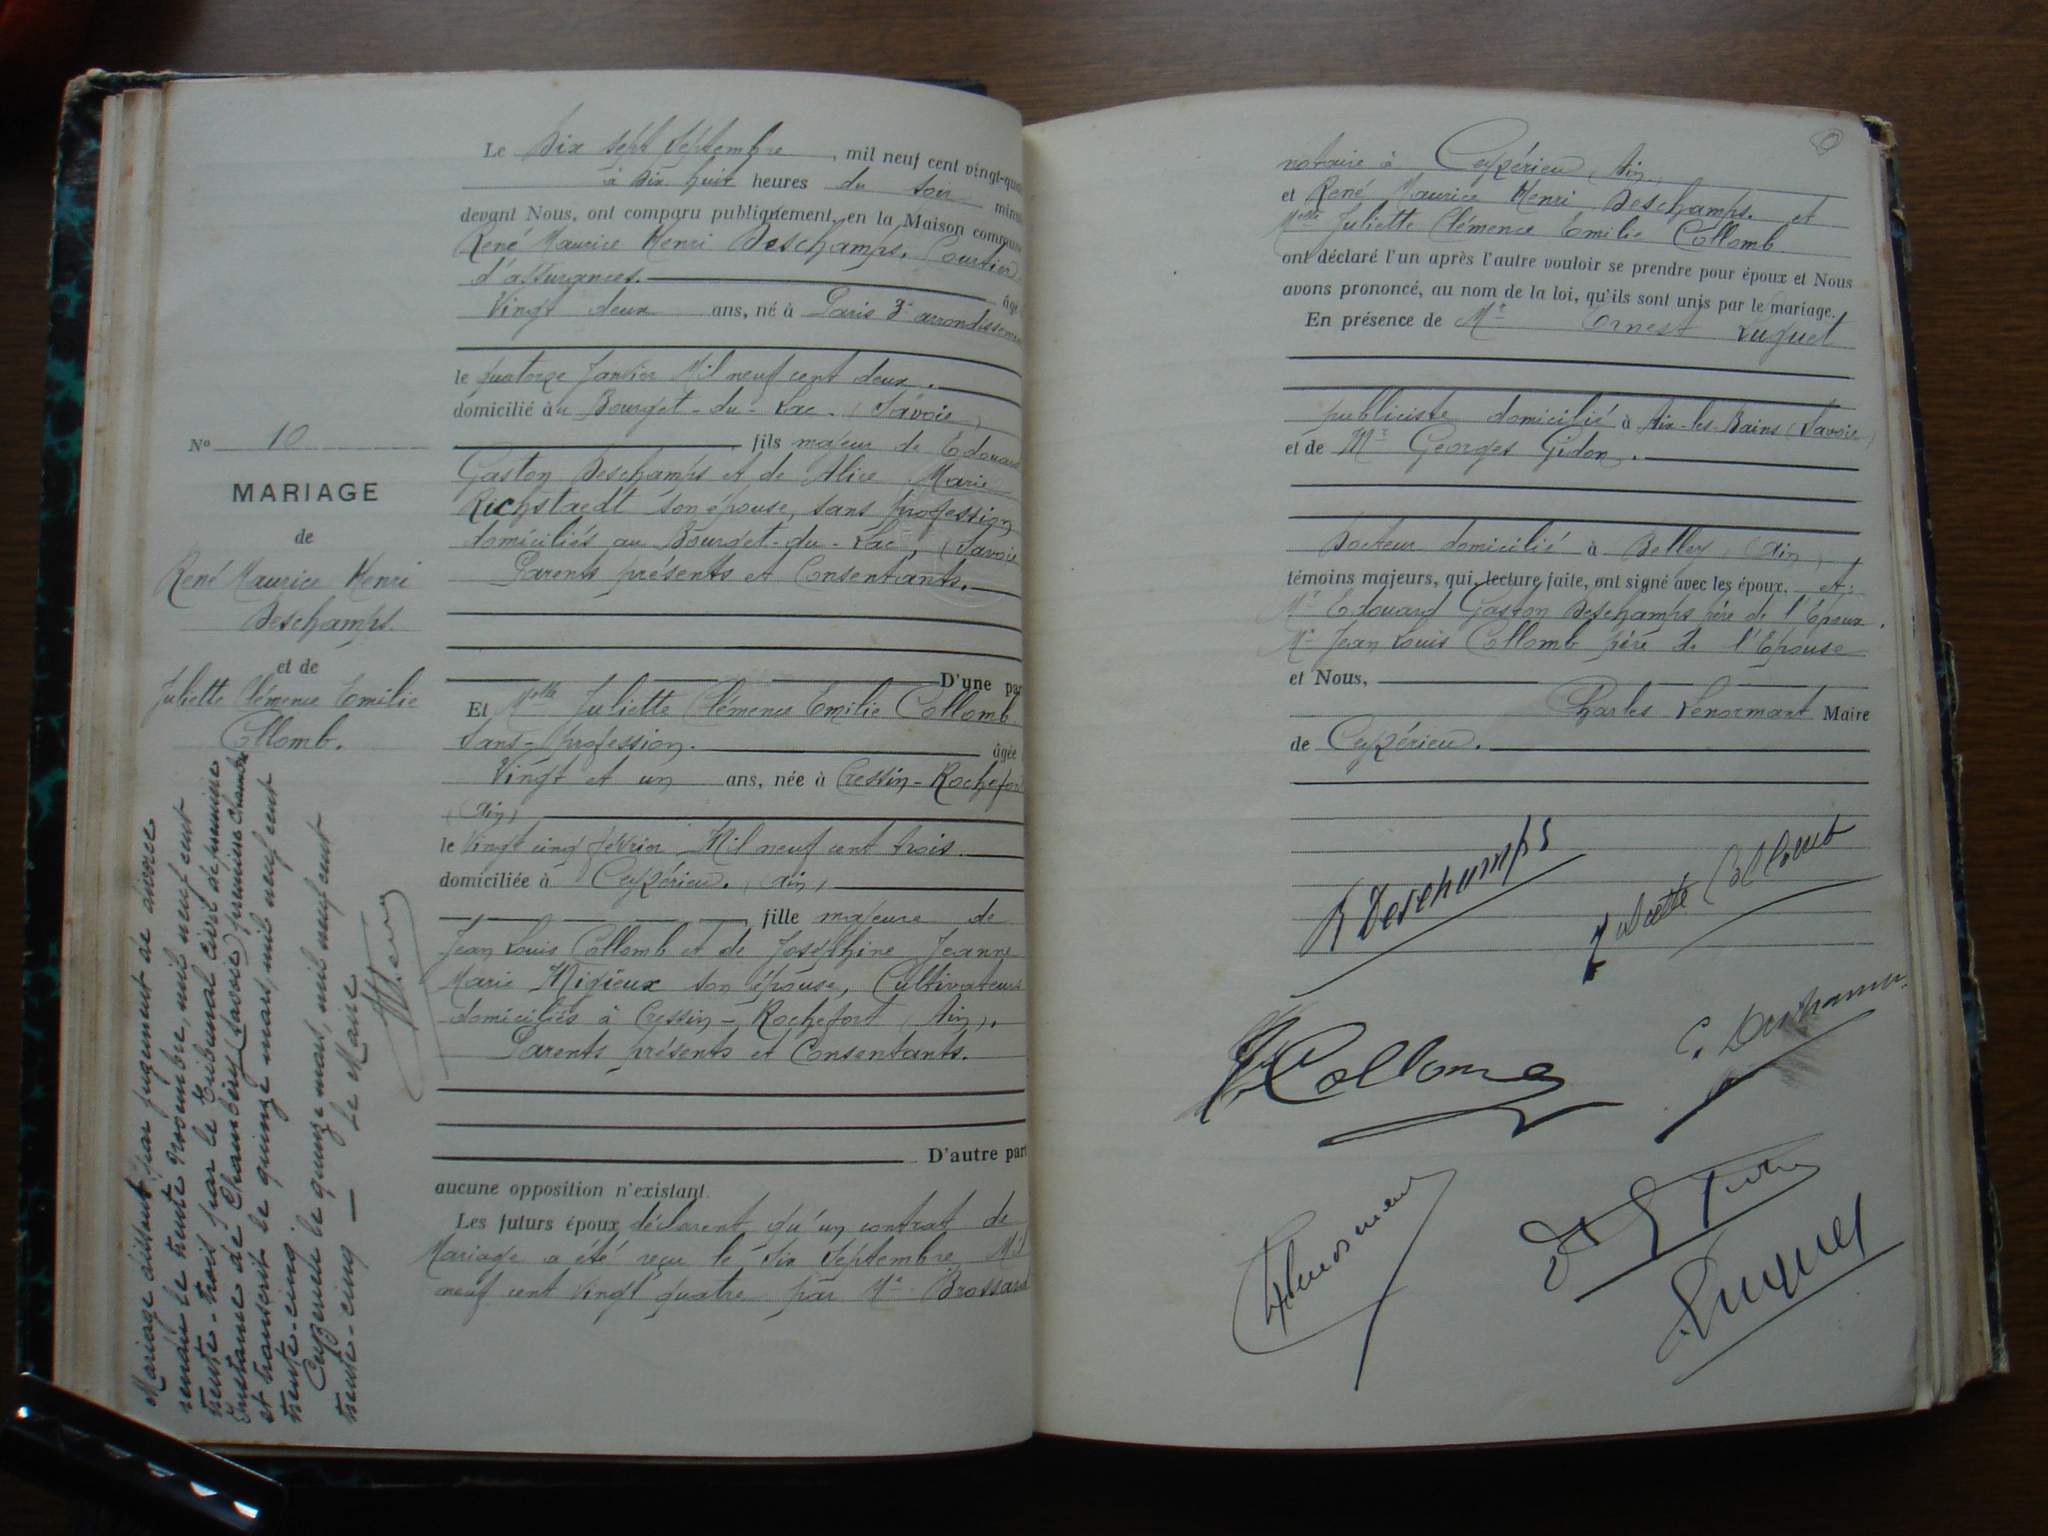 Le Dix sept Septembre, mil neuf cent vingt-quat
à Dix huit heures du soir minu
devant Nous, ont comparu publiquement, en la Maison commune
René Maurice Henri Deschamps, Courtier
d'assurances. âgé
Vingt deux ans, né à Paris 3e arrondisseme
le quatorze Janvier Mil neuf cent deux.
domicilié au Bourget-du-Lac. (Savoie)
fils majeur de Edouard
Gaston Deschamps et de Alice Marie
Richstaedt son épouse, sans profession,
domiciliés au Bourget-du-Lac, (Savoie
Parents présents et Consentants.
D'une par
Et Melle Juliette Clémence Emilie Collomb
Sans-profession. âgée
Vingt et un ans, née à Cressin-Rochefort
(Ain)
le Vingt cinq février Mil neuf cent trois.
domiciliée à Ceyzérieu. (Ain)
fille majeure de
Jean Louis Collomb et de Joséphine Jeanne
Marie Migieux son épouse, Cultivateurs
domiciliés à Cressin-Rochefort (Ain).
Parents présents et Consentants.
D'autre par
aucune opposition n'existant.
Les futurs époux déclarent qu'un contrat de
Mariage a été reçu le Six Septembre Mil
neuf cent Vingt quatre par Me Brossard
No 10
MARIAGE
de
René Maurice Henri
Deschamps.
et de
Juliette Clémence Emilie
Collomb.
Mariage dissout par jugement de divorce
rendu le trente Novembre, mil neuf cent
trente-trois par le Tribunal civil de première
Instance de Chambéry (Savoie) première chambre
et transcrit le quinze mars, mil neuf cent
trente-cinq.
Ceyzérieu le quinze mars, mil neuf cent
trente-cinq — Le Maire
notaire à Ceyzérieu (Ain)
et René Maurice Henri Deschamps. et
Melle Juliette Clémence Emilie Collomb
ont déclaré l'un après l'autre vouloir se prendre pour époux et Nous
avons prononcé, au nom de la loi, qu'ils sont unis par le mariage.
En présence de Mr Ernest Luguet
publiciste domicilié à Aix-les-Bains (Savoie)
et de Mr Georges Gidon.
Docteur domicilié à Belley, (Ain)
témoins majeurs, qui, lecture faite, ont signé avec les époux. et:
Mr Edouard Gaston Deschamps père de l'Epoux.
Mr Jean Louis Collomb père de l'Epouse
et Nous,
Charles Lenormant Maire
de Ceyzérieu.
R Deschamps
Juliette Collomb
Collomb
Luguet